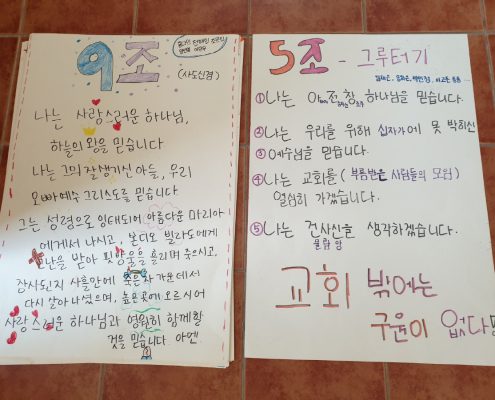 9조
(사도신경)
나는 사랑스러운 하나님,
하늘의 왕을 믿습니다
나는 그의 잘생기신 아들, 우리
오빠 예수 그리스도를 믿습니다
그는 성령으로 잉태되어 아름다운 마리아
에게서 나시고, 본디오 빌라도에게
고난을 받아 핏방울을 흘리며 죽으시고,
장사된지 사흘만에 죽은자 가운데서
다시 살아나셨으며, 높은곳에 오르시어
사랑스러운 하나님과 영원히 함께할
것을 믿습니다. 아멘
5조 - 그루터기
①나는 아 전 창 하나님을 믿습니다.
②나는 우리를 위해 십자가에 못 박히신
③예수님을 믿습니다.
④나는 교회를 (부름받은 사람들의 모임)
열심히 가겠습니다.
⑤나는 전사신을 생각하겠습니다.
교회 밖에는
구원이 없다